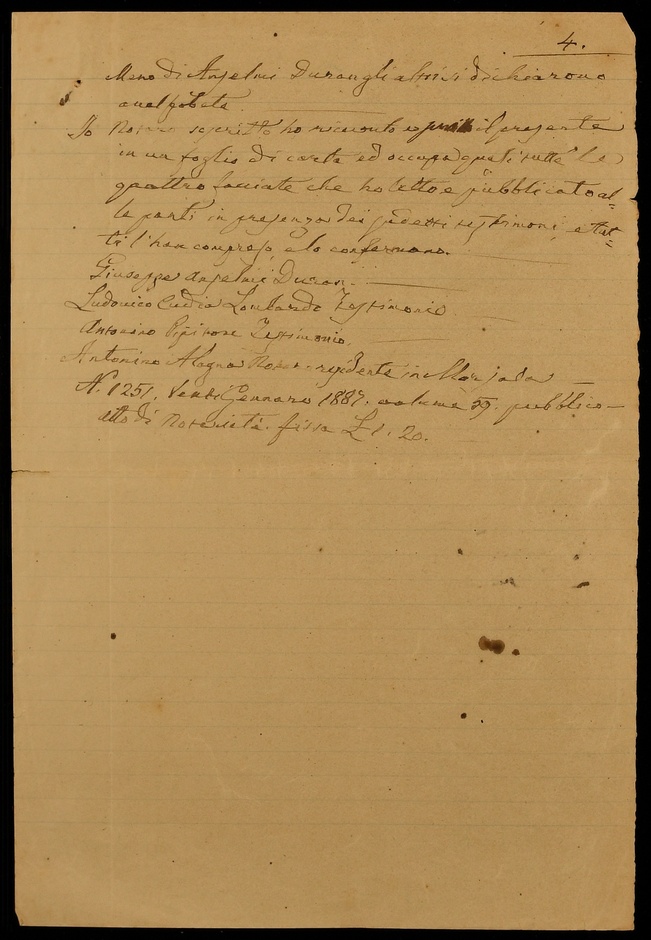 4.
Meno di Anselmi Duran gli altri si dichiarono
analfabeta.
Io Notaro soscritto ho ricevuto e il presente
in un foglio di carta ed occupa questi tutte le
quattro facciate che ho letto e pubblicato al=
le parti in presenza dei sudetti testimoni, e tut=
ti l'han compreso, e lo confermano.
Giuseppe Anselmi Duran.
Ludovico Lombardo Testimonio
Antonino Pipitone Testimonio.
Antonino Alagna Notar residente in Marsala
N. 1251. Gennaro 1887. volume 59. pubblico
atto di Notarietà fissa £ 1. 20.